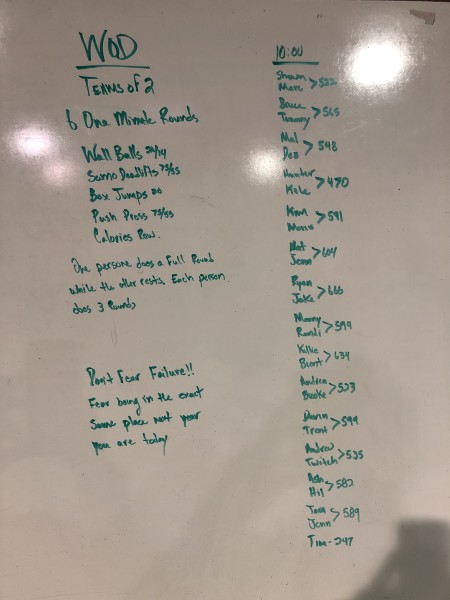 WOD
Teams of 2
6 One Minute Rounds
Wall Balls 20/14
Sumo Deadlifts 75/55
Box Jumps 20
Push Press 75/55
Calories Row.
One persone does a Full Round
while the other rests. Each person
does 3 Rounds
Don't Fear Failure!!
Fear being in the exact
same place next year
you are today
10:00
Shawn
Marc >522
Bruce
Tammy >565
Mel
Dez >548
Hunter
Kole >490
>591
Mat
Jenn >604
Ryan
Jake >666
Randi >599
Kellie
Brent >634
Andrea
Brooke >523
Devin
Trent >599
Andrew
Twitch >535
Ash
Hil >582
Tom
Jenn >589
Tim - 247